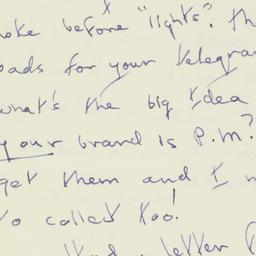 oke before "lights". th
oads for your telegra
what's the big idea
your brand is P.M?
get them and I
to collect too!
letter